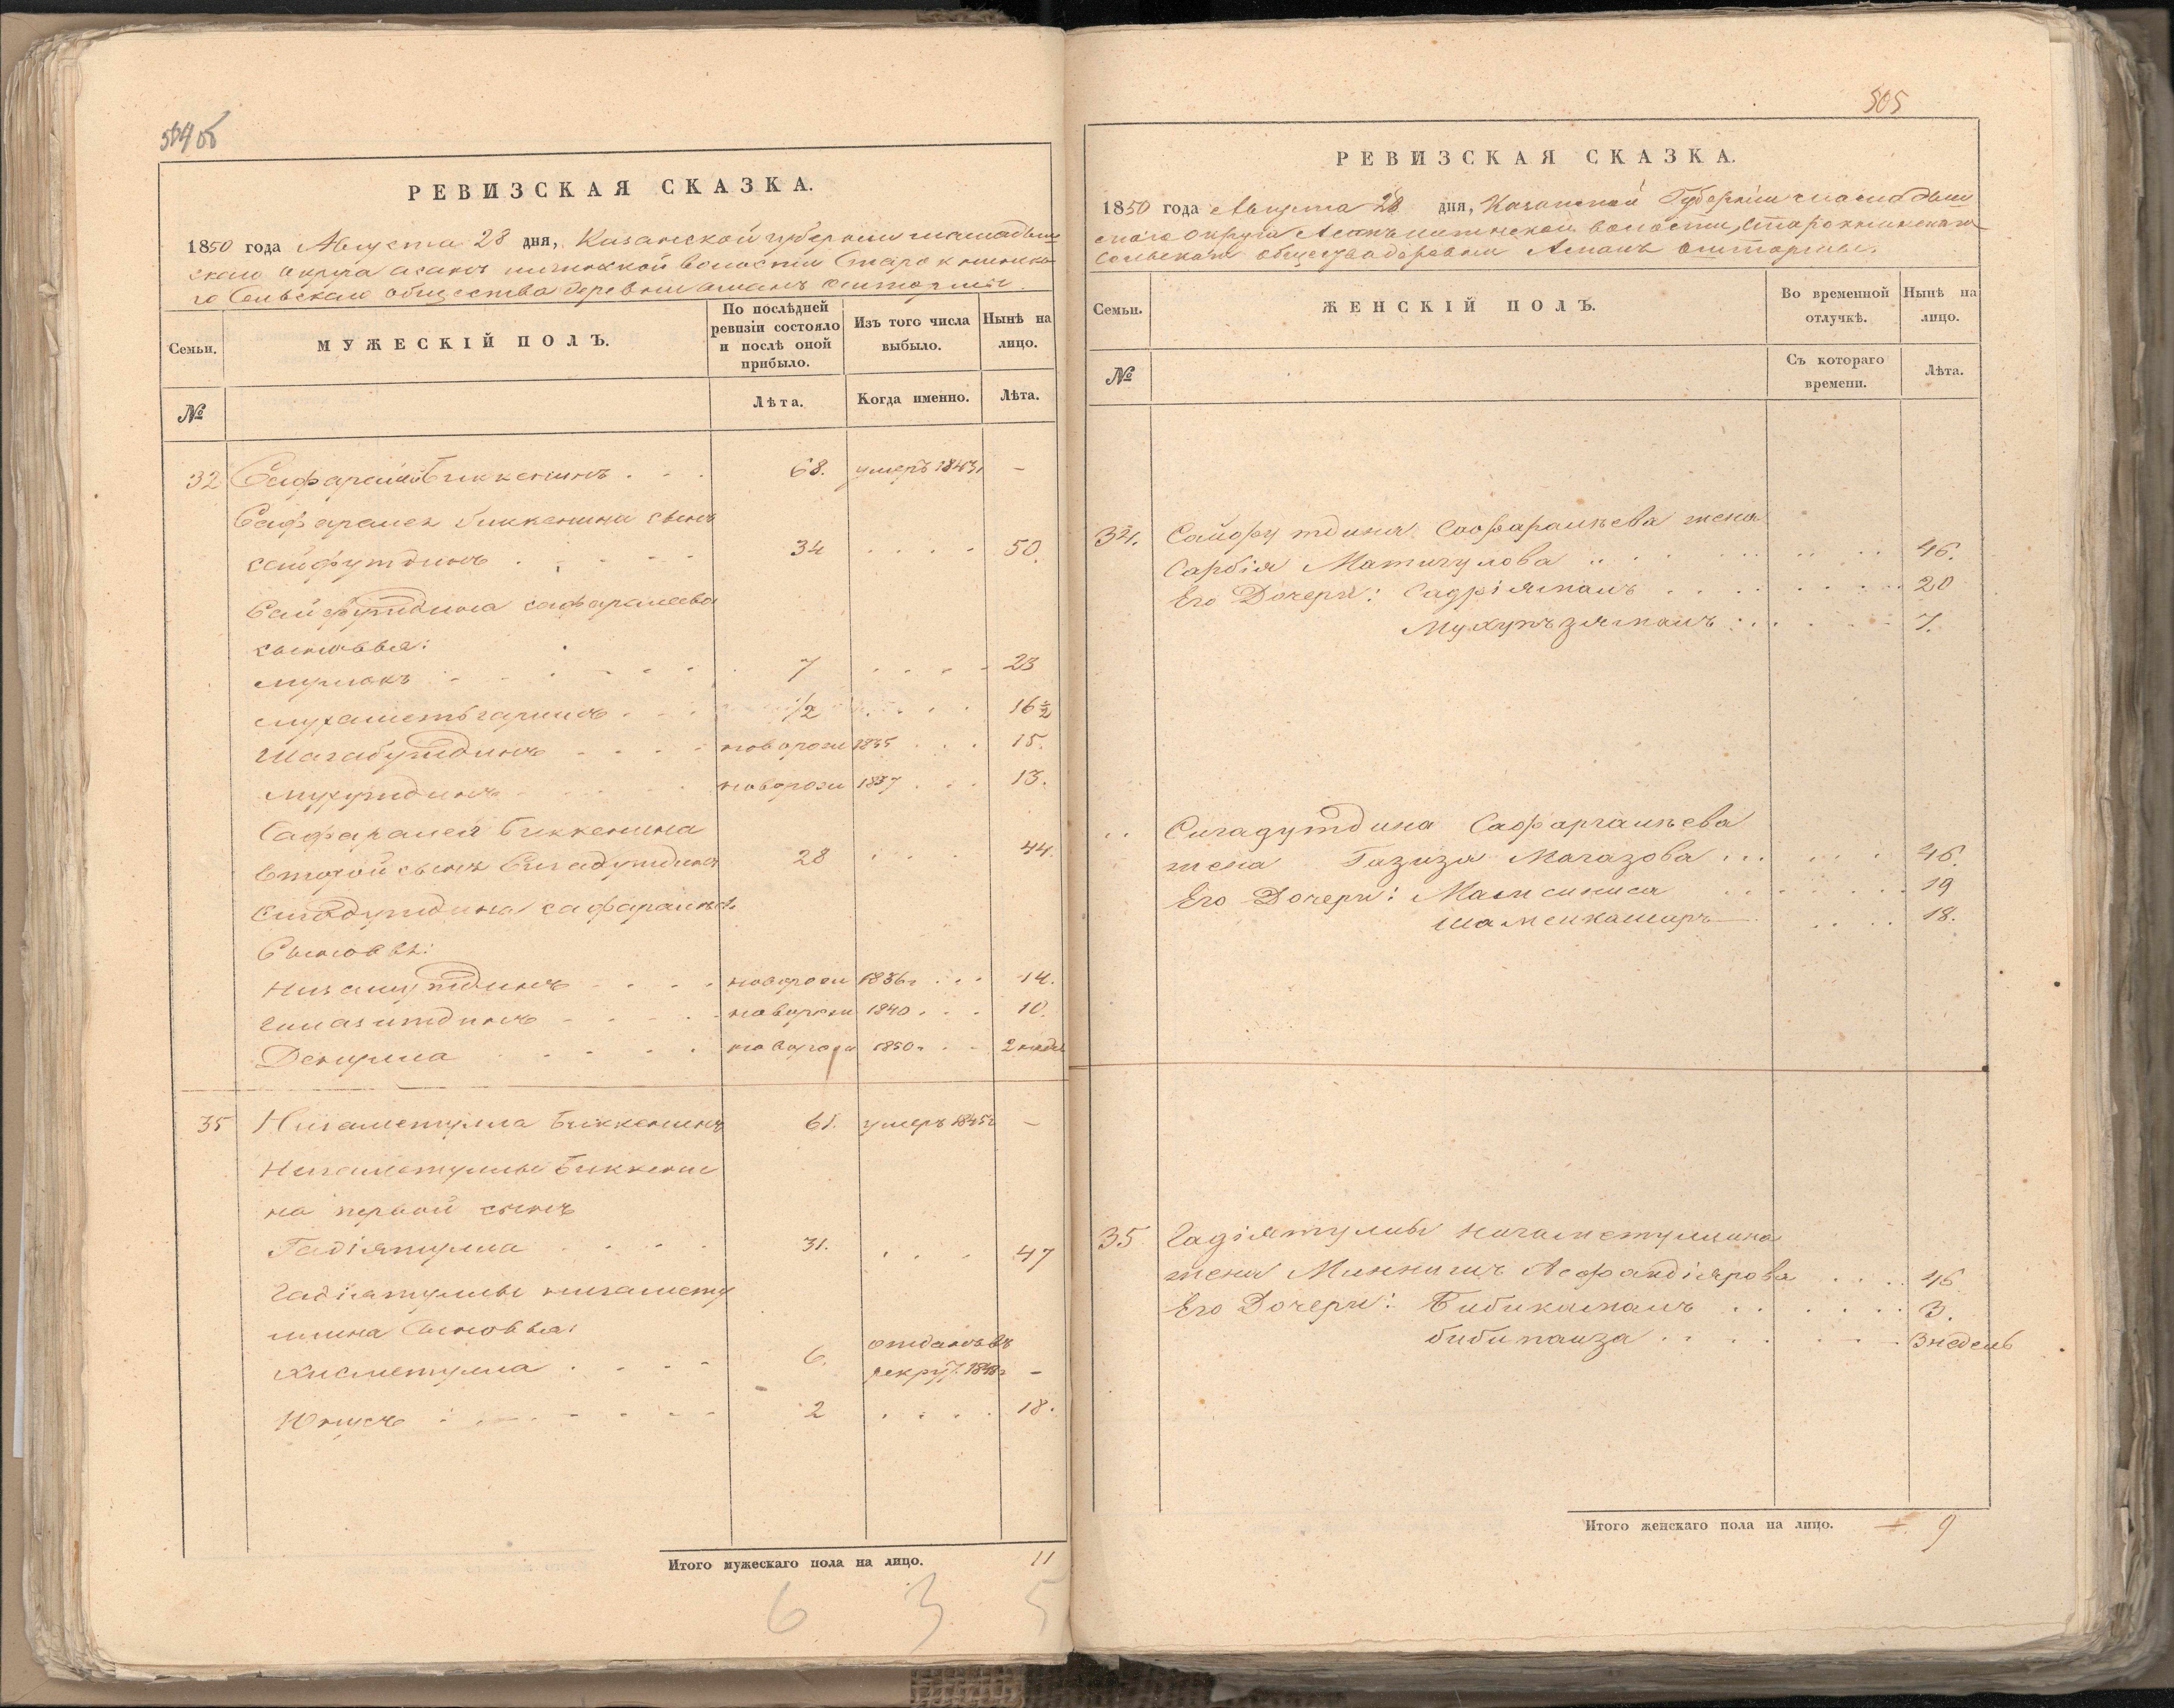 504об
РЕВИЗСКАЯ СКАЗКА.
1850 года Августа 28 дня, Казанской губернии мамадыш
скаго округа асанъ волости Старо
го Сельскаго общества деревни
Семьи.
МУЖЕСКІЙ ПОЛЪ.
По послѣдней
ревизіи состояло
и послѣ оной
прибыло.
Изъ того числа
выбыло.
Нынѣ на
лицо.
№
Лѣта.
Когда именно.
Лѣта.
32 Сафаралей Биккенинъ . . . 68. умеръ 1843 –
Сафаралея биккенина сынъ
сайфутдинъ . . . . 34 . . . . 50.
Сайфутдина сафаралеева
сыновья:
7 . . . . 23
мухаметьгарипъ . . . 1/2 . . . . 16 1/2
Шагабутдинъ . . . . новорож 1835 . . . 15.
мухутдинъ . . . . новорож 1837 . . . 13.
Сафаралея Биккенина
второй сынъ Сигадутдинъ 28 . . . 44.
Сигадутдина сафаралеев.
Сыновья:
Низамутдинъ . . . . новорож 1836 . . . 14.
гимазитдинъ . . . . новорож 1840 . . . 10.
. . . . новорож 1850 . . . 2 неде
35 Нигаметулла Биккенинъ 61. умеръ 1845 –
Нигаметуллы Биккени
на первой сынъ
Гадіятулла . . . . 31. . . . 47
Гадіятуллы нигамету
ллина Сыновья:
Хисметулла . . . . 6. отданъ въ
рекру. 1848 –
Юнусъ . . . . 2 . . . . 18.
Итого мужескаго пола на лицо. 11
6 3 5
505
РЕВИЗСКАЯ СКАЗКА.
1850 года Августа 28 дня, Казанской Губерніи мамадыш
скаго округа волости,
Сельскаго общества деревни
Семьи.
ЖЕНСКІЙ ПОЛЪ.
Во временной
отлучкѣ.
Нынѣ на
лицо.
№
Съ котораго
времени.
Лѣта.
34. Сайфутдина Сафаралѣева жена
Сарбія Матигулова . . . . 46.
Его Дочери: Садріяманъ . . . . 20
Мухупъзяманъ . . . . 7.
.. Сигадутдина Сафаргалѣева
жена Газиза Магазова . . . . 46.
Его Дочери: . . . . 19
Шамсикамаръ . . . . 18.
35. Гадіятуллы нигаметуллина
жена Миннигиз Асфандіярова . . . . 46
Его Дочери: Бибикамалъ . . . . 3.
бибинаиза . . . . 3 недель
Итого женскаго пола на лицо. 9